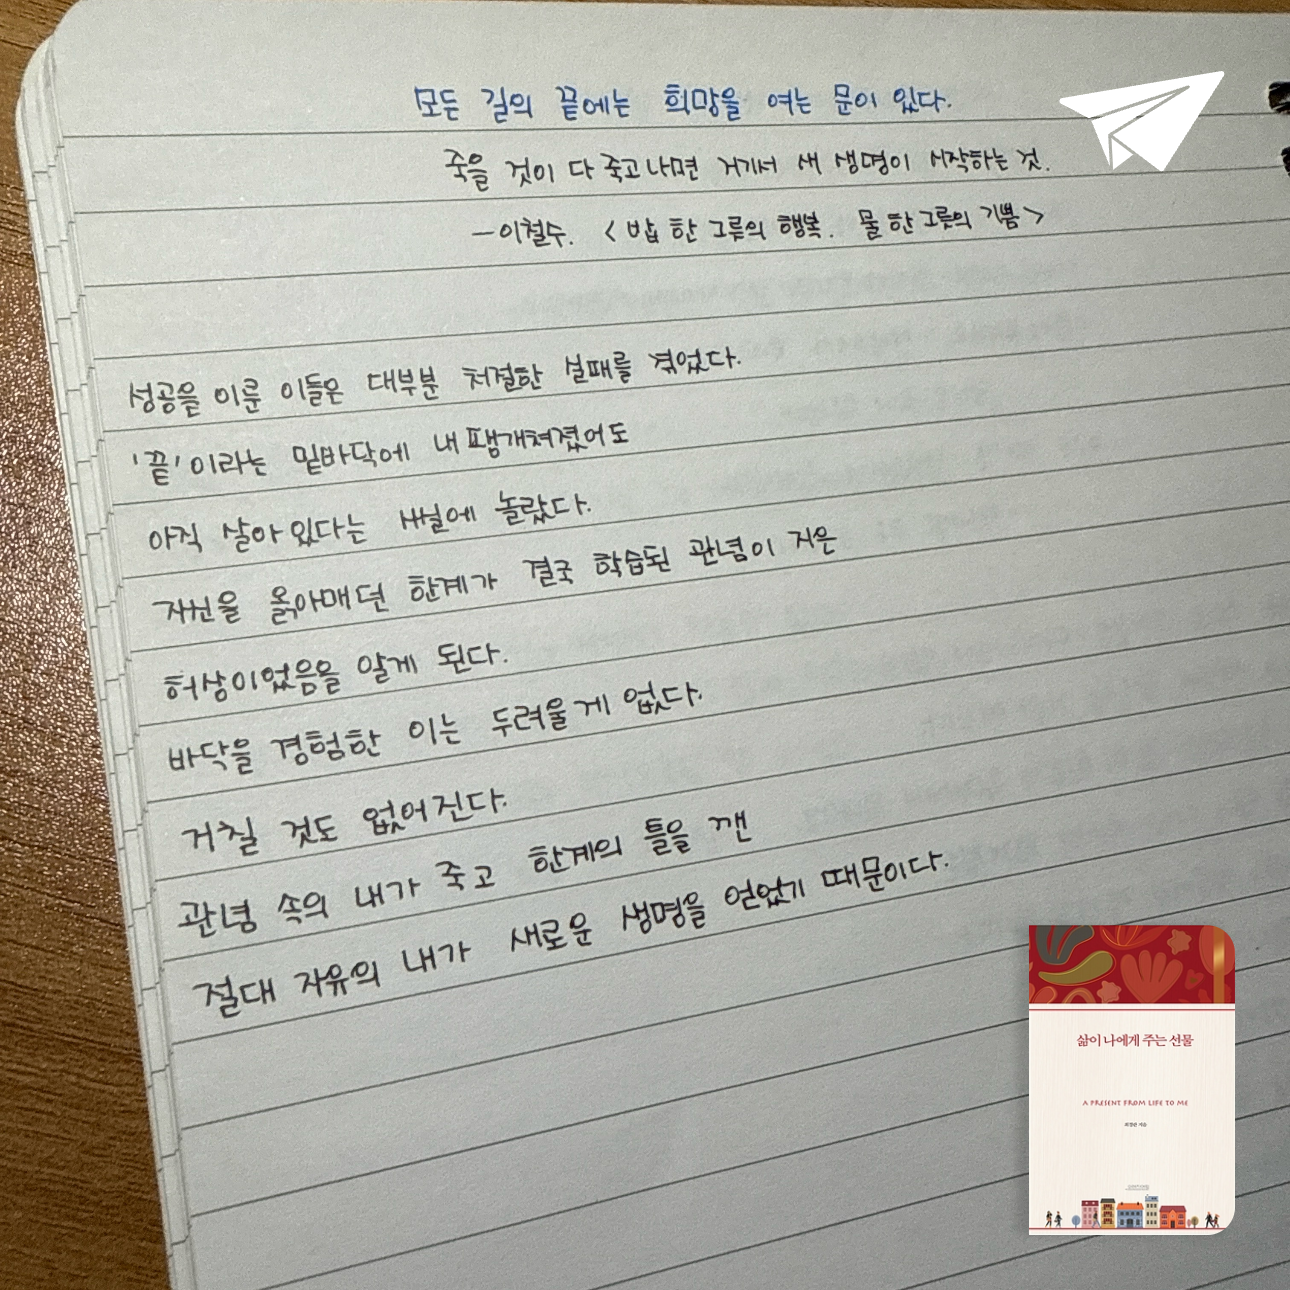 모든 길의 끝에는 희망을 여는 문이 있다.
죽을 것이 다 죽고나면 거기서 새 생명이 시작하는 것.
-이철수. <밥 한 그릇의 행복. 물 한 그릇의 기쁨>
성공을 이룬 이들은 대부분 처절한 실패를 겪었다.
'끝'이라는 밑바닥에 내팽개쳐졌어도
아직 살아있다는 사실에 놀랐다.
자신을 옭아매던 한계가 결국 학습된 관념이 지은
허상이었음을 알게 된다.
바닥을 경험한 이는 두려울게 없다.
거칠 것도 없어진다.
관념 속의 내가 죽고 한계의 틀을 깬
절대 자유의 내가 새로운 생명을 얻었기 때문이다.
삶이 나에게 주는 선물
A PRESENT FROM LIFE TO ME